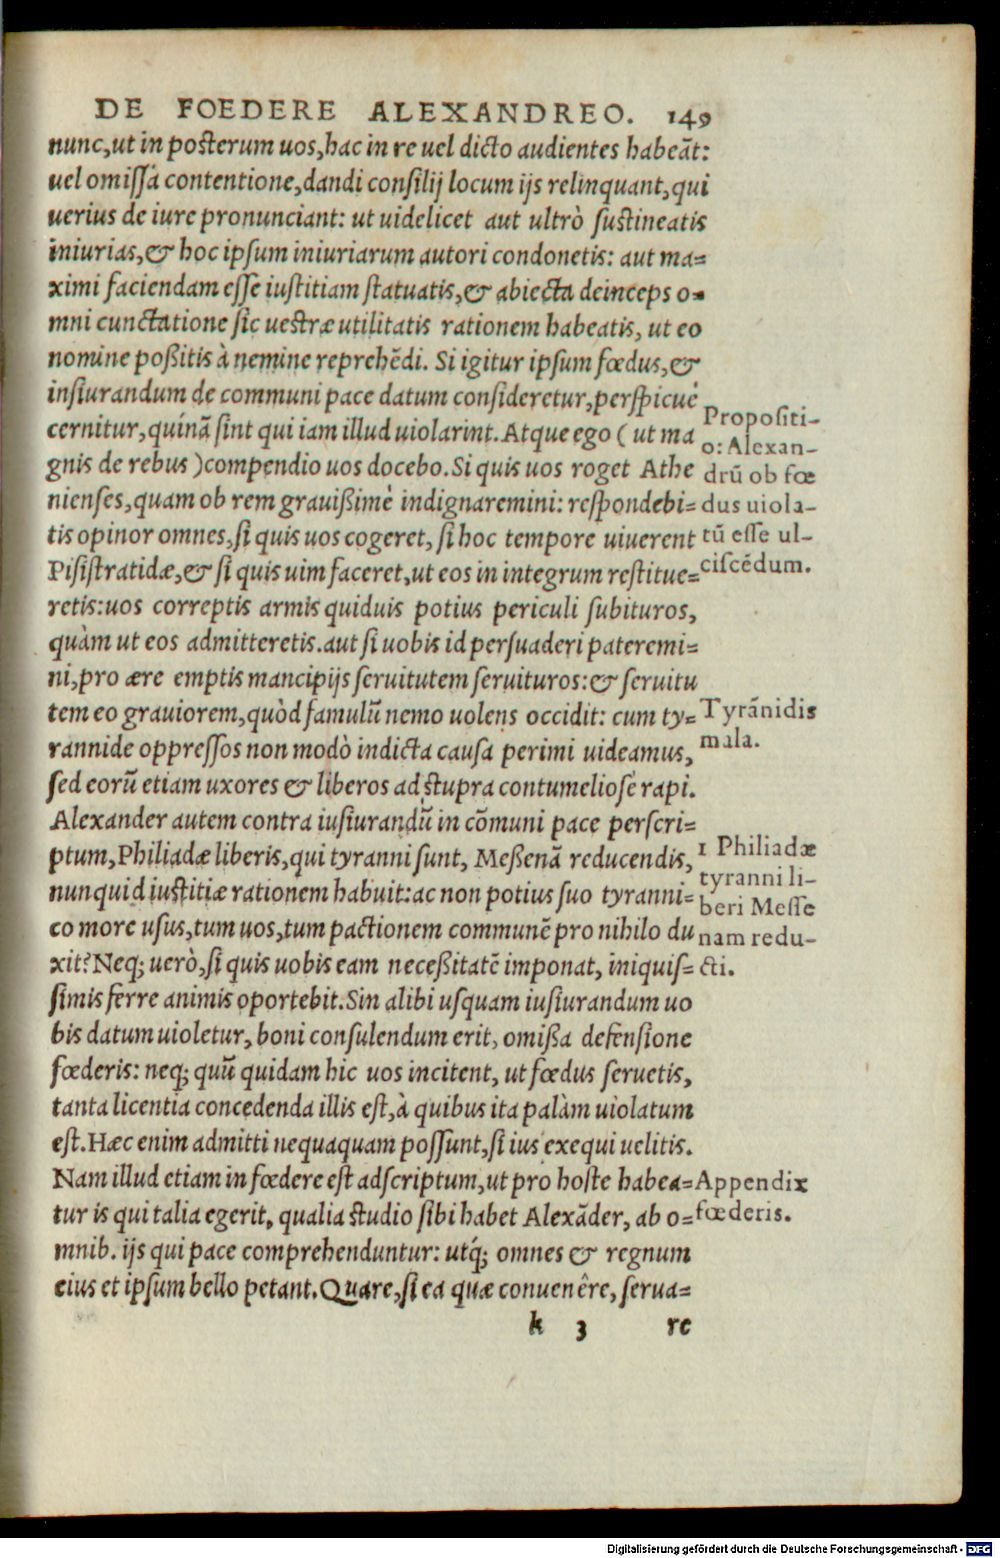 DE FOEDERE ALEXANDREO. 149
nunc, ut in posterum uos, hac in re uel dicto audientes habeāt:
uel omissa contentione, dandi consilij locum ijs relinquant, qui
uerius de iure pronunciant: ut uidelicet aut ultrò sustineatis
iniurias, & hoc ipsum iniuriarum autori condonetis: aut ma=
ximi faciendam esse iustitiam statuatis, & abiecta deinceps o=
mni cunctatione sic uestræ utilitatis rationem habeatis, ut eo
nomine poßitis à nemine reprehēdi. Si igitur ipsum fœdus, &
insiurandum de communi pace datum consideretur, perspicuè
cernitur, quínā sint qui iam illud uiolarint. Atque ego ( ut ma
gnis de rebus ) compendio uos docebo. Si quis uos roget Athe
nienses, quam ob rem grauißimè indignaremini: respondebi=
tis opinor omnes, si quis uos cogeret, si hoc tempore uiuerent
Pisistratidæ, & si quis uim faceret, ut eos in integrum restitue=
retis: uos correptis armis quiduis potius periculi subituros,
quàm ut eos admitteretis. aut si uobis id persuaderi pateremi=
ni, pro ære emptis mancipijs seruitutem seruituros: & seruitu
tem eo grauiorem, quòd famulū nemo uolens occidit: cum ty=
rannide oppressos non modò indicta causa perimi uideamus,
sed eorū etiam uxores & liberos ad stupra contumeliosè rapi.
Alexander autem contra iusiurandū in cōmuni pace perscri=
ptum, Philiadæ liberis, qui tyranni sunt, Meßenā reducendis,
nunquid iustitiæ rationem habuit: ac non potius suo tyranni=
co more usus, tum uos, tum pactionem communē pro nihilo du
xit? Neq; uerò, si quis uobis eam neceßitatē imponat, iniquis=
simis ferre animis oportebit. Sin alibi usquam iusiurandum uo
bis datum uioletur, boni consulendum erit, omißa defensione
fœderis: neq; quū quidam hic uos incitent, ut fœdus seruetis,
tanta licentia concedenda illis est, à quibus ita palàm uiolatum
est. Hæc enim admitti nequaquam possunt, si ius exequi uelitis.
Nam illud etiam in fœdere est adscriptum, ut pro hoste habea=
tur is qui talia egerit, qualia studio sibi habet Alexāder, ab o=
mnib. ijs qui pace comprehenduntur: utq́; omnes & regnum
eius et ipsum bello petant. Quare, si ea quæ conuenêre, serua=
k 3 re
Propositi-
o: Alexan-
drū ob fœ
dus uiola-
tū esse ul-
ciscēdum.
Tyrānidis
mala.
1 Philiadæ
tyranni li-
beri Messe
nam redu-
cti.
Appendix
fœderis.
Digitalisierung gefördert durch die Deutsche Forschungsgemeinschaft - DFG